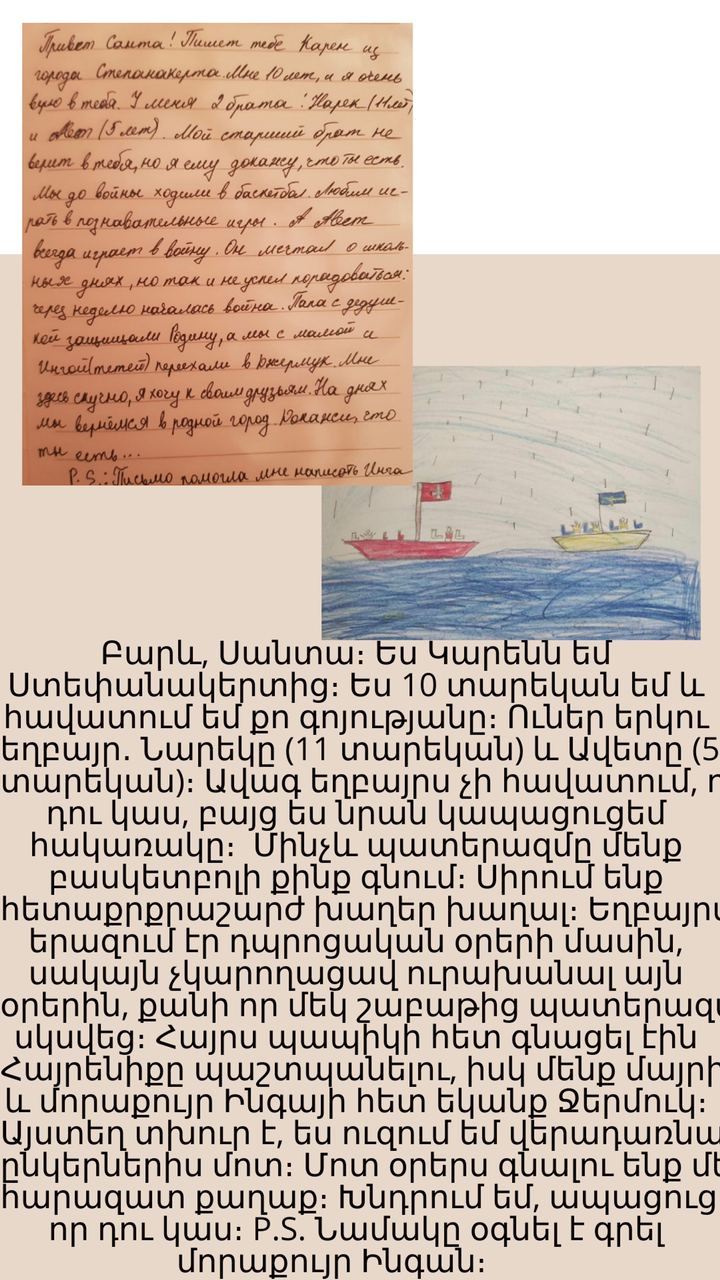 Привет Санта! Пишет тебе Карен из
города Степанакерта. Мне 10 лет, и я очень
верю в тебя. У меня 2 брата: Нарек (11 лет)
и Авет (5 лет). Мой старший брат не
верит в тебя, но я ему докажу, что ты есть.
Мы до войны ходили в баскетбол. Любим иг-
рать в познавательные игры. А Авет
всегда играет в войну. Он мечтал о школь-
ных днях, но так и не успел порадоваться:
через неделю началась война. Папа с дедуш-
кой защищали Родину, а мы с мамой и
Ингой (тетей) переехали в Джермук. Мне
здесь скучно, я хочу к своим друзьям. На днях
мы вернёмся в родной город. Докажи, что
ты есть...
P.S.: Письмо помогла мне написать Инга
Բարև, Սանտա։ Ես Կարենն եմ
Ստեփանակերտից։ Ես 10 տարեկան եմ և
հավատում եմ քո գոյությանը։ Ուներ երկու
եղբայր. Նարեկը (11 տարեկան) և Ավետը (5
տարեկան)։ Ավագ եղբայրս չի հավատում, ո
դու կաս, բայց ես նրան կապացուցեմ
հակառակը։ Մինչև պատերազմը մենք
բասկետբոլի քինք գնում։ Սիրում ենք
հետաքրքրաշարժ խաղեր խաղալ։ Եղբայրս
երազում էր դպրոցական օրերի մասին,
սակայն չկարողացավ ուրախանալ այն
օրերին, քանի որ մեկ շաբաթից պատերազմ
սկսվեց։ Հայրս պապիկի հետ գնացել էին
Հայրենիքը պաշտպանելու, իսկ մենք մայրի
և մորաքույր Ինգայի հետ եկանք Ջերմուկ։
Այստեղ տխուր է, ես ուզում եմ վերադառնա
ընկերներիս մոտ։ Մոտ օրերս գնալու ենք մե
հարազատ քաղաք։ Խնդրում եմ, ապացուց
որ դու կաս։ P.S. Նամակը օգնել է գրել
մորաքույր Ինգան։